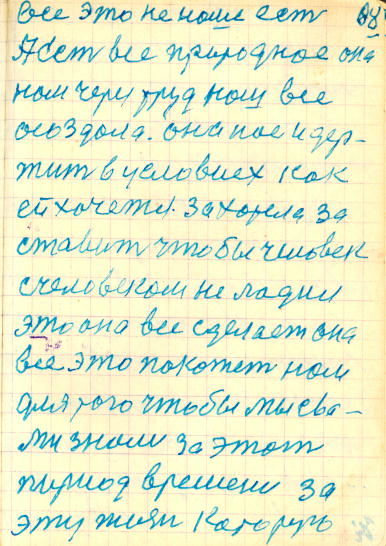 все это не наше есть 98
А есть все природное она
нам через труд наш все
создала. Она нас и дер-
жит в условиех как
ей хочется. Захотела за
ставит чтобы человек
с человеком не ладил
это она все сделает она
все это покажет нам
для того чтобы мы сва-
ми знали за этот
период времени за
эту жизн которую